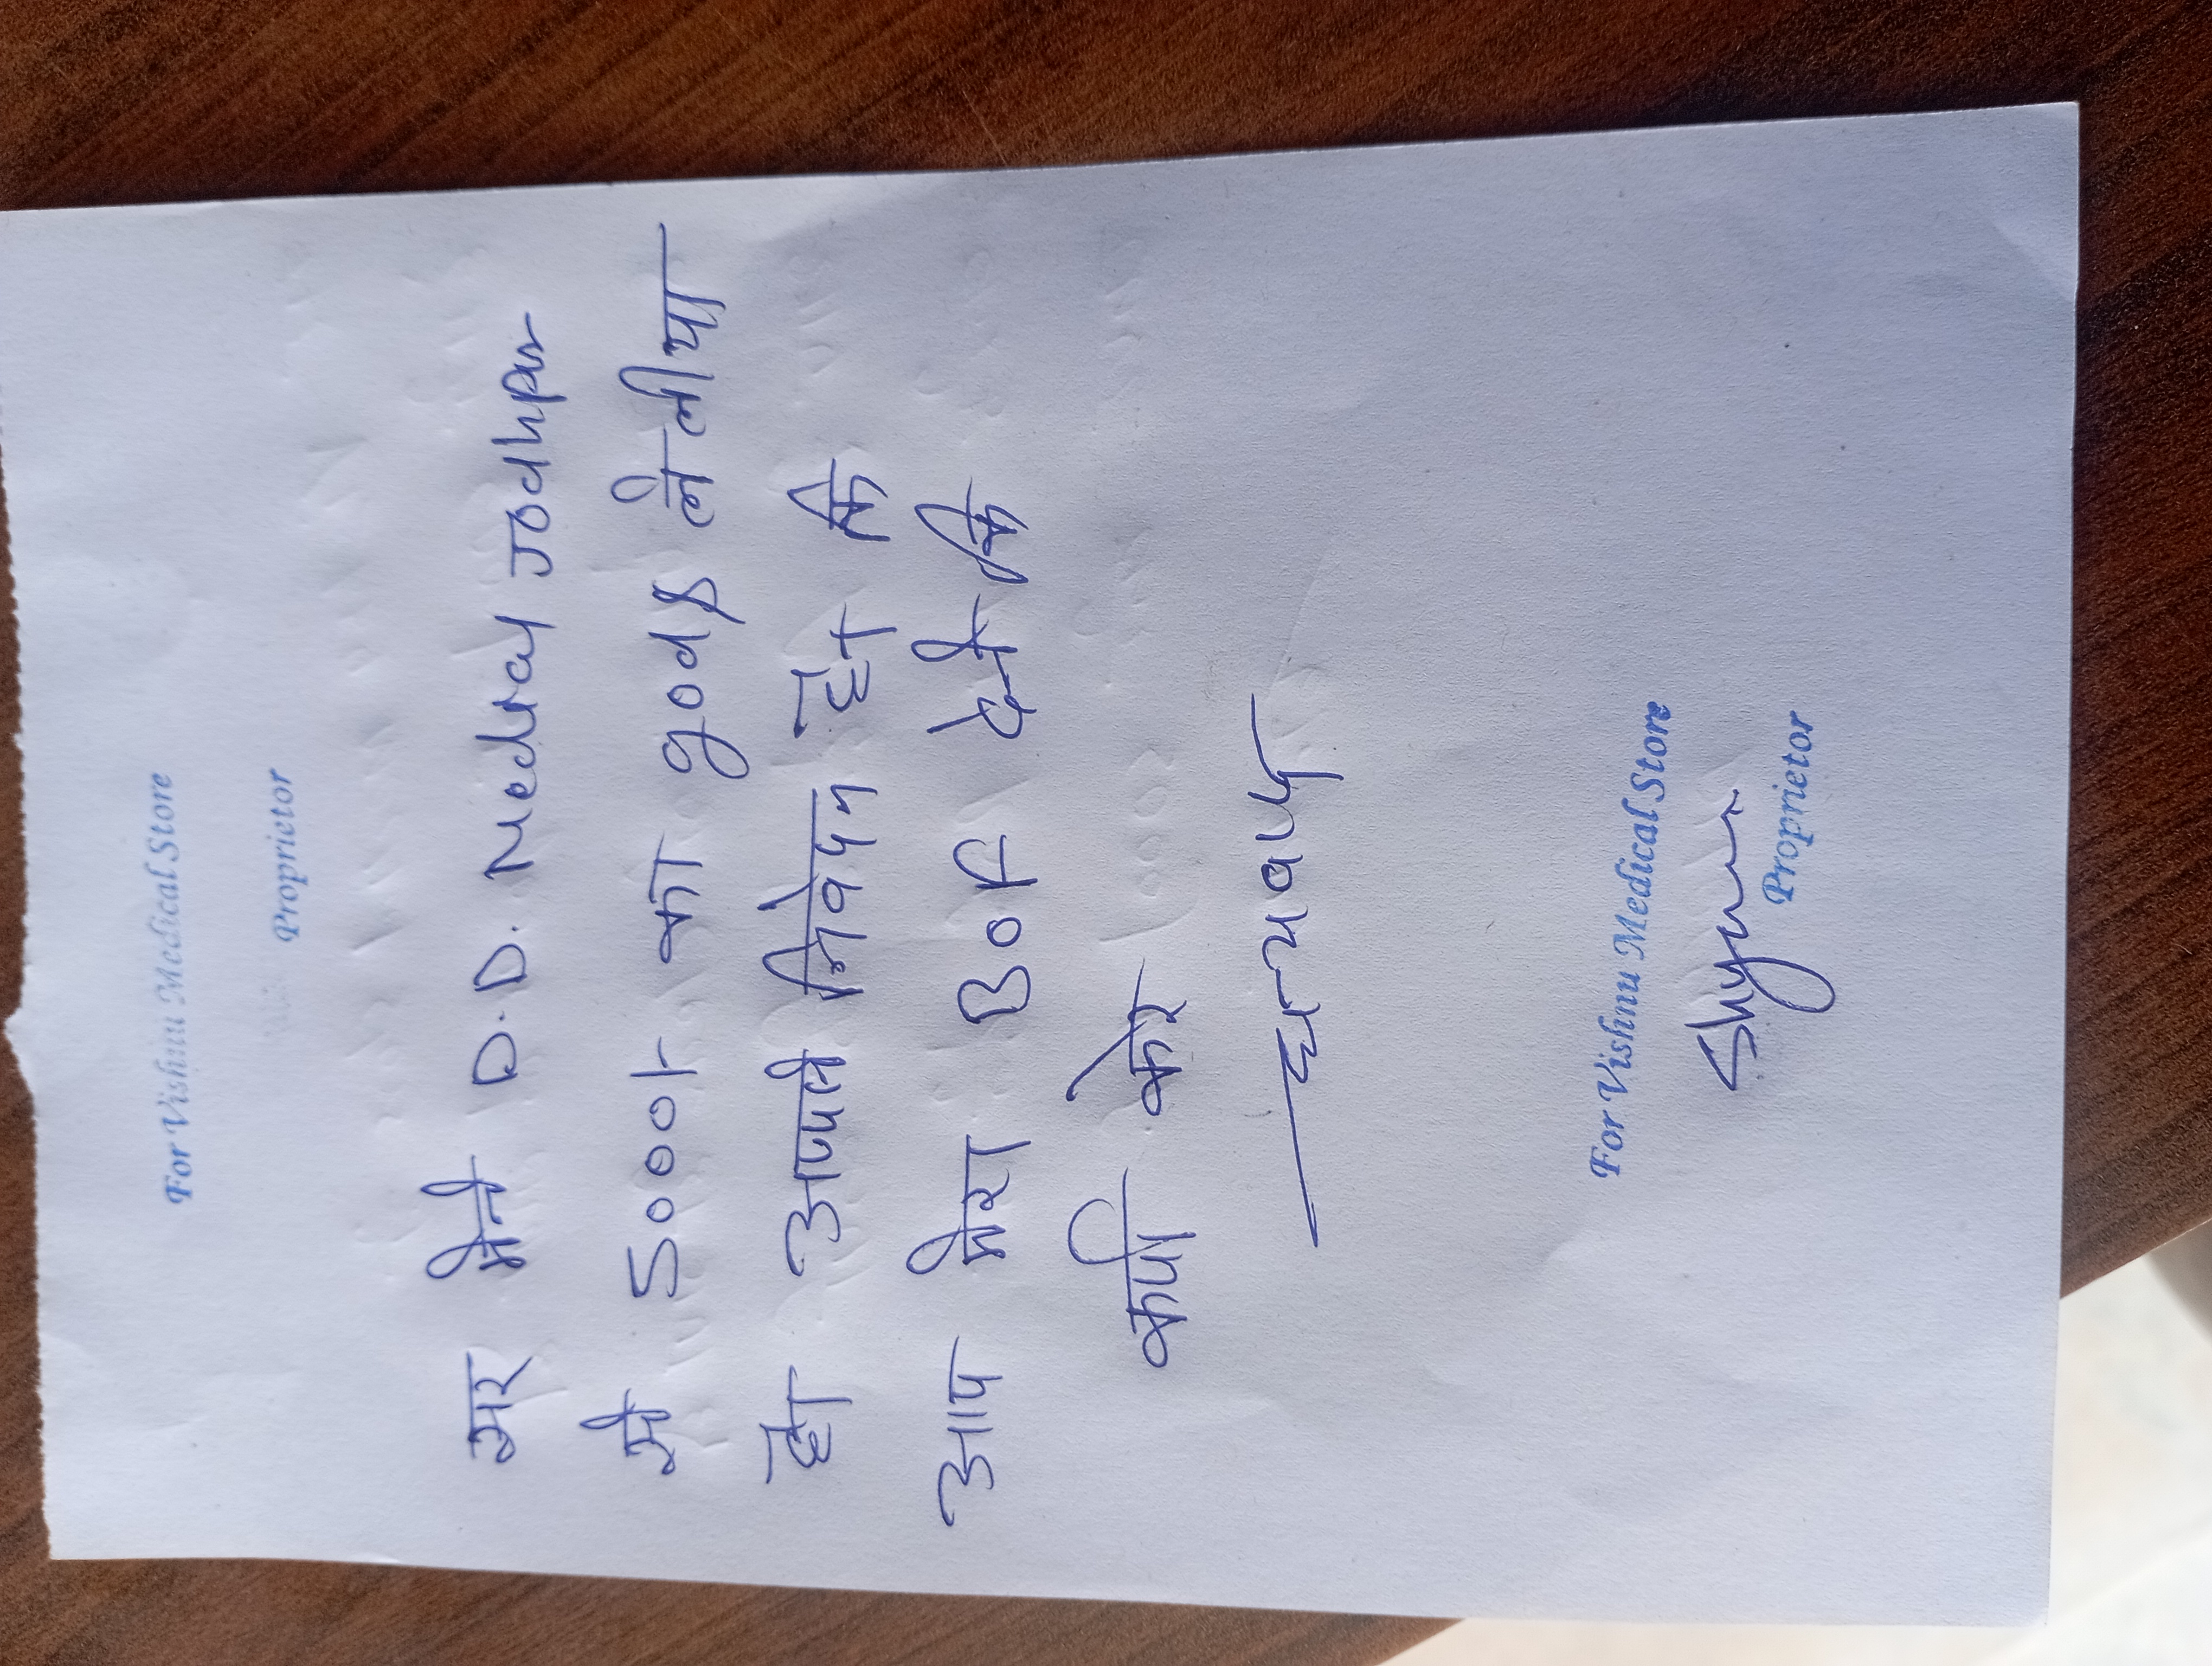 For Vishnu Medical Store
Proprietor
सर मैने D.D. Medical Jodhpur
से 5000/- का goods ले लीया
है आपसे निवेदन है कि
आप मेरा BOF कि
कापी करे
धन्यवाद
For Vishnu Medical Store
Shyam
Proprietor